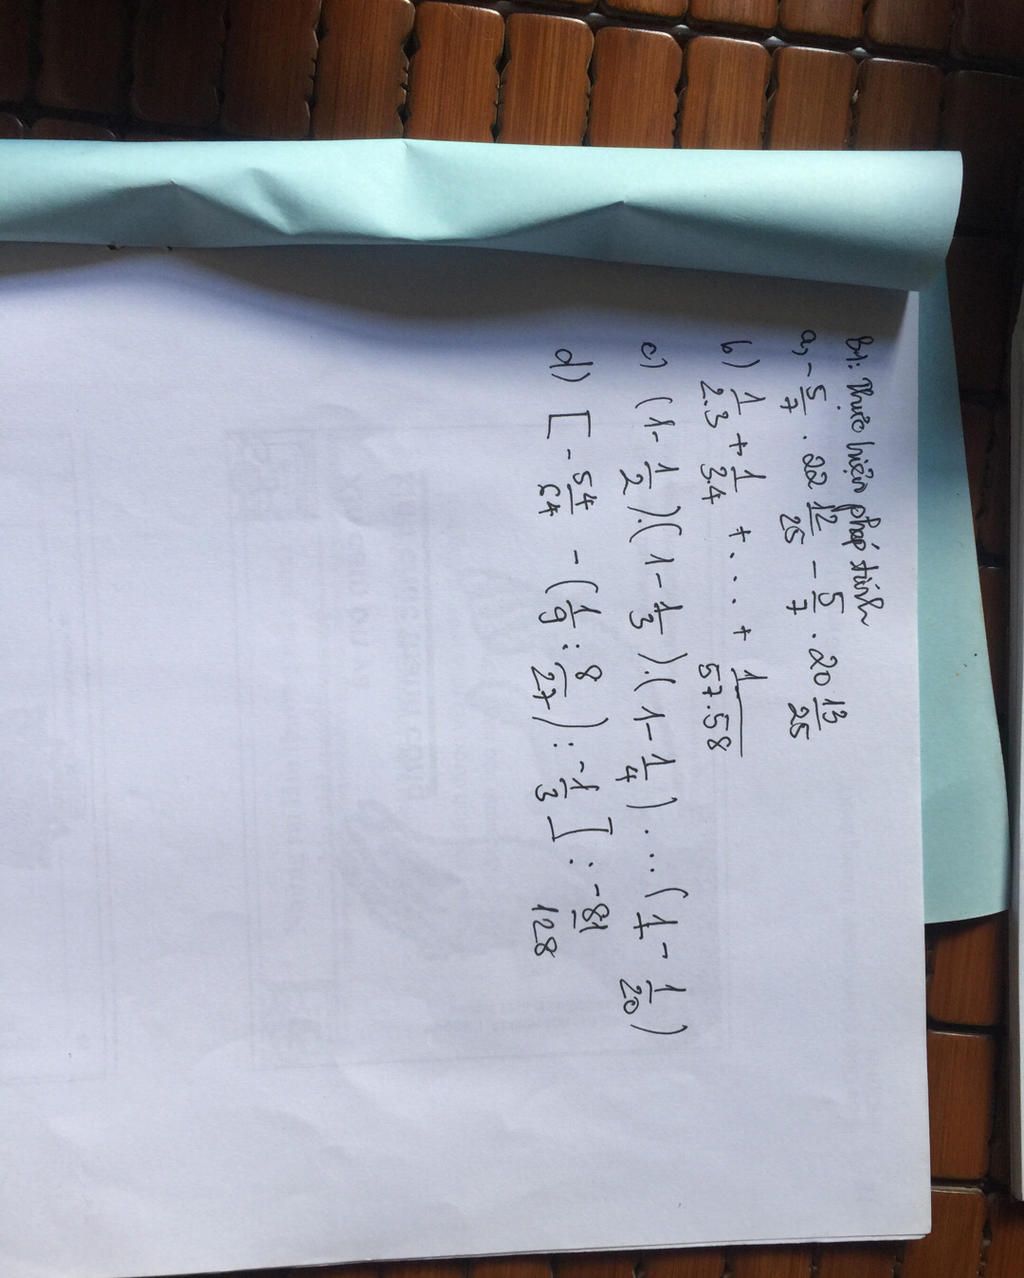 B1: Thực hiện phép tính
a, -5/7 . 22 12/25 - 5/7 . 20 13/25
b) 1/2.3 + 1/3.4 + ... + 1/57.58
c) (1 - 1/2).(1 - 1/3).(1 - 1/4)...(1 - 1/20)
d) [ -54/64 - (1/9 : 8/27) : -1/3 ] : -81/128